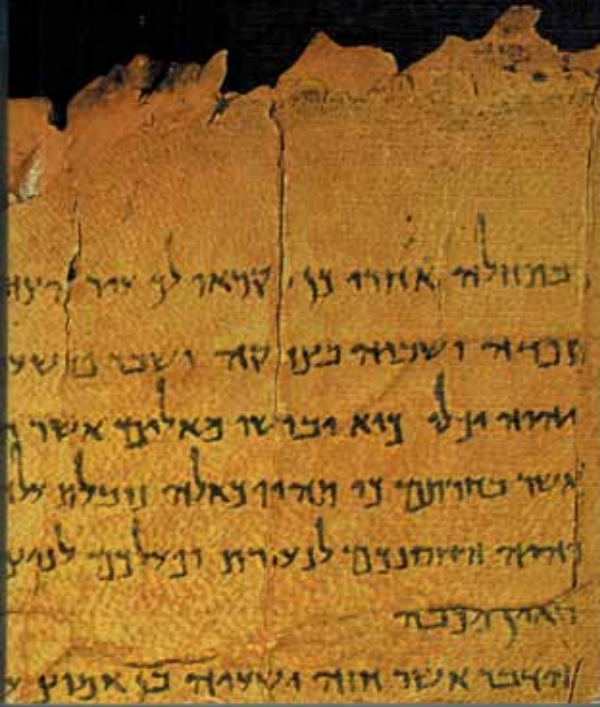 כבתחלה אחרי כן יקראו לך עיר הצד
תפדה ושביה בצדקה ושבר פושע
יהוה יכלו כיא יבושו מאלים אשר
אשר בחרתם כי תהיו כאלה נובלת עלה
והיה החסנכם לנעורת ופעלכם לניצ
ואין מכבה
הדבר אשר חזה ישעיה בן אמוץ ע